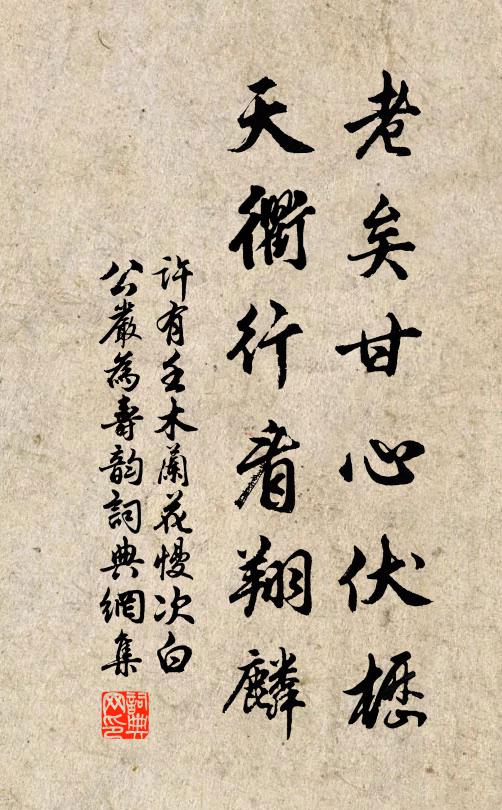 老矣甘心伏櫪
天衢行看翔麟
許有壬木蘭花慢次白
公嚴為壽韵詞典網集
詞典网印